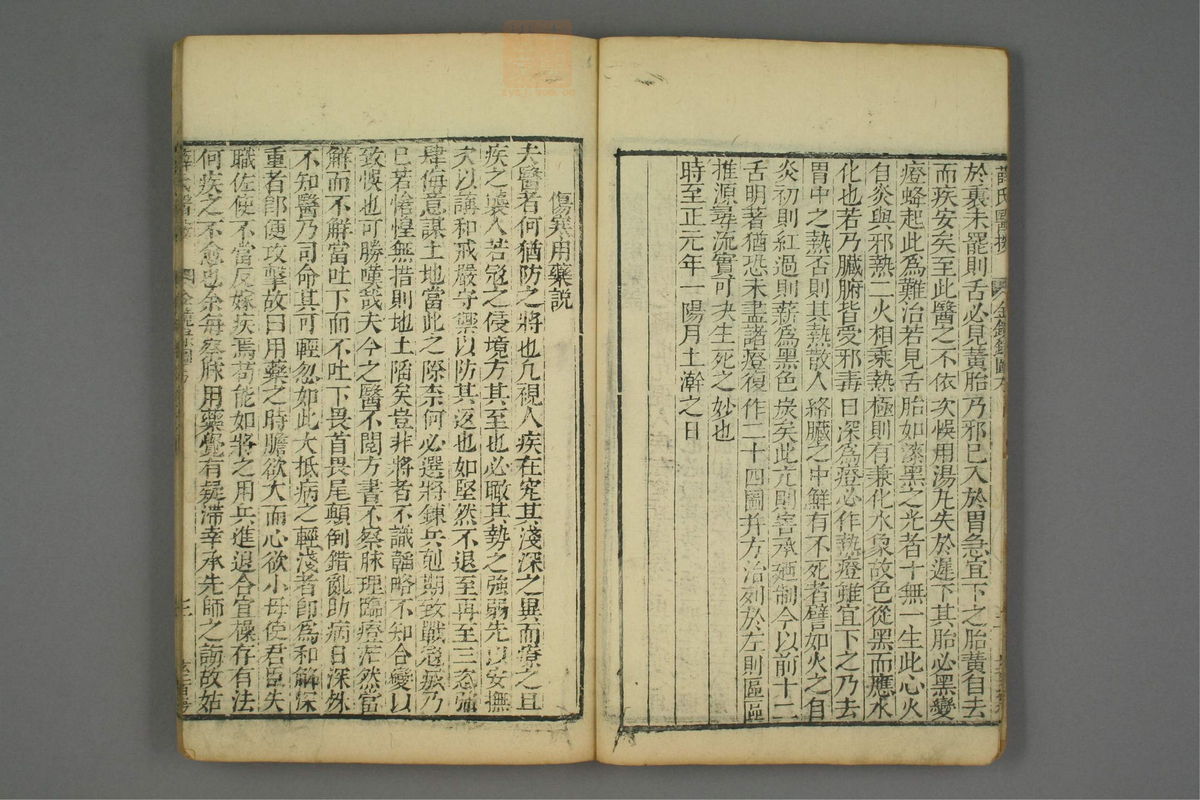 薛氏醫按
金鏡錄
於裏未罷則舌必見黃胎乃邪已入於胃急宜下之胎黃自去
而疾安矣至此醫之不依次悞用湯丸失於遲下其胎必黑變
證蜂起此為難治若見舌胎如漆黑之光者十無一生此心火
自炎與邪熱二火相乘熱極則有兼化水象故色從黑而應水
化也若乃臟腑皆受邪毒日深為證必作熱證雖宜下之乃去
胃中之熱否則其熱散入絡臟之中鮮有不死者譬如火之自
炎初則紅過則薪為黑色炭矣此亢則害承廼制今以前十二
舌明著猶恐未盡諸證復作二十四圖并方治列於左則區區
推源尋流實可决生死之妙也
時至正元年一陽月上澣之日
傷寒用藥說
夫醫者何猶防之將也凡視人疾在究其淺深之異而療之且
疾之襲人若宼之侵境方其至也必瞰其勢之強弱先以安撫
次以講和戒嚴守禦以防其返也如堅然不退至再至三恣彌
肆侮意謀土地當此之際柰何必選將錬兵刻期致戰宼疾乃
已若愴惶無措則地土陷矣豈非將者不識韜略不知合變以
致悞也可勝嘆哉夫今之醫不閱方書不察脉理臨療茫然當
解而不解當吐下而不吐下畏首畏尾顛倒錯亂助病日深殊
不知醫乃司命其可輕忽如此大抵病之輕淺者即為和解深
重者即便攻擊故曰用藥之時膽欲大而心欲小毋使君臣失
職佐使不當反嫁疾焉苟能如將之用兵進退合宜操存有法
何疾之不愈也余每察脉用藥覺有疑滯幸承先師之誨故姑
薛氏醫按